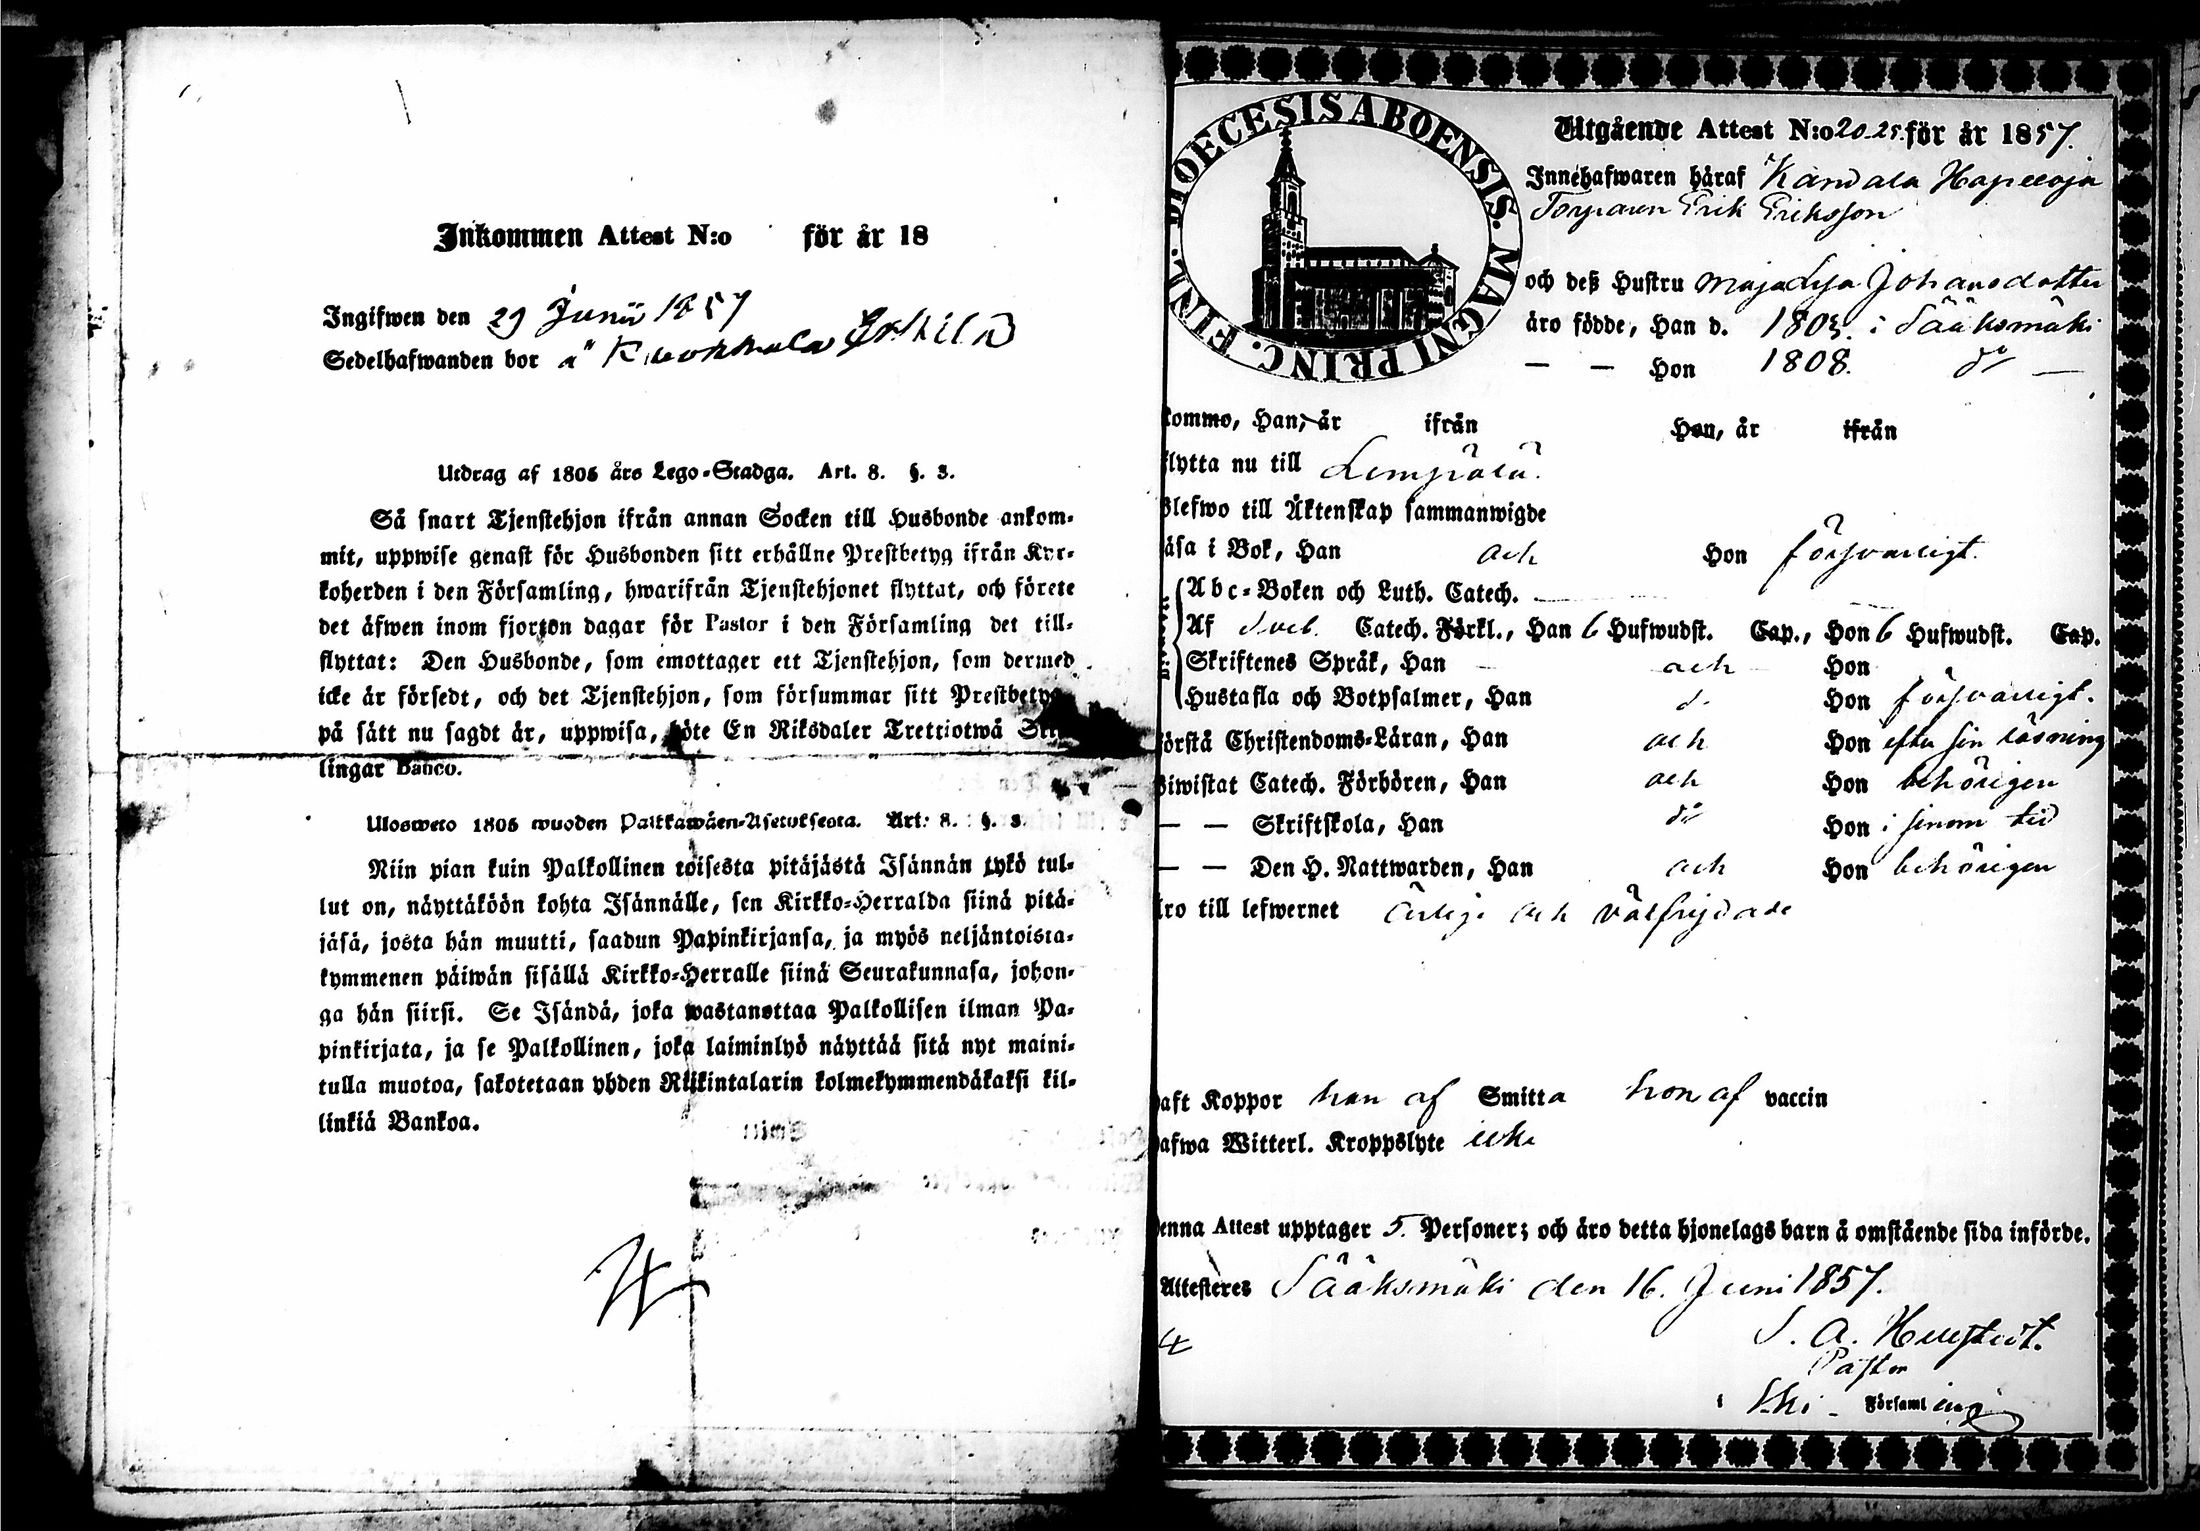 Inkommen Attest N:o för år 18
Ingifwen den 29 Junii 1857
Sedelhafwanden bor å Kuokkala Eskilä
Utdrag af 1805 års Lego-Stadga. Art. 8. §. 3.
Så snart Tjenstehjon ifrån annan Socken till Husbonde ankom-
mit, uppwise genast för Husbonden sitt erhållne Prestbetyg ifrån Kyr-
koherden i den Församling, hwarifrån Tjenstehjonet flyttat, och förete
det äfwen inom fjorton dagar för Pastor i den Församling det till-
flyttat: Den Husbonde, som emottager ett Tjenstehjon, som dermed
icke är försedt, och det Tjenstehjon, som försummar sitt Prestbetyg
på sätt nu sagdt är, uppwisa, böte En Riksdaler Trettiotwå
lingar Banco.
Ulosweto 1805 wuoden Palkkawäen-Asetuksesta. Art: 8. §. 3.
Niin pian kuin Palkollinen toisesta pitäjästä Isännän tykö tul-
lut on, näyttäköön kohta Isännälle, sen Kirkko-Herralda siinä pitä-
jäsä, josta hän muutti, saadun Papinkirjansa, ja myös neljäntoista-
kymmenen päiwän sisällä Kirkko-Herralle siinä Seurakunnasa, johon-
ga hän siirsi. Se Isändä, joka wastanottaa Palkollisen ilman Pa-
pinkirjata, ja se Palkollinen, joka laiminlyö näyttää sitä nyt maini-
tulla muotoa, sakotetaan yhden Riikintalarin kolmekymmendäkaksi kil-
linkiä Bankoa.
DIOECESIS ABOENSIS. MAGNI PRINC. FINL.
Utgående Attest N:o 20.25. för år 1857.
Innehafwaren häraf
Torparen Erik Eriksson
och deß Hustru Maja Lisa Johansdotter
äro födde, Han d. 1805. i Sääksmäki
— — Hon 1808. do —
kommo, Han, år ifrån Hon, år ifrån
flytta nu till Lempälä.
Blefwo till Äktenskap sammanwigde
läsa i Bok, Han och Hon försvarligt.
Abc-Boken och Luth. Catech.
Af Sveb. Catech. Förkl., Han 6 Hufwudst. Cap., Hon 6 Hufwudst. Cap.
Skriftenes Språk, Han — och Hon
Hustafla och Botpsalmer, Han do Hon försvarligt.
förstå Christendoms-Läran, Han och Hon efter sin läsning
Biwistat Catech. Förhören, Han och Hon behörigen
— — Skriftskola, Han do Hon i sinom tid
— — Den H. Nattwarden, Han och Hon behörigen
äro till lefwernet ärlige och välfrejdade
haft Koppor han af Smitta hon af vaccin
hafwa Witterl. Kroppslyte icke
Denna Attest upptager 5. Personer; och äro detta hjonelags barn å omstående sida införde.
Attesteres Sääksmäki den 16. Juni 1857.
Pastor
i Ski - Församling